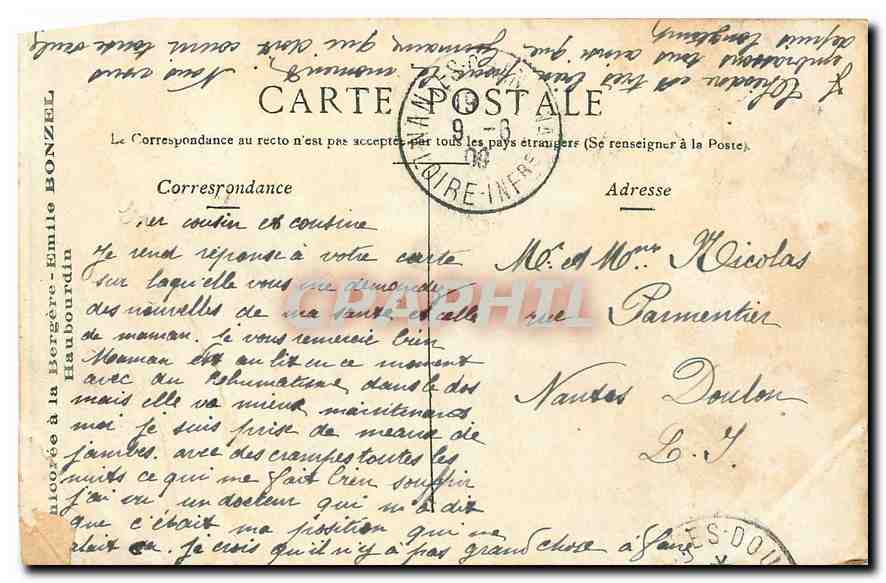 CARTE POSTALE
La Correspondance au recto n'est pas acceptée par tous les pays étrangers (Se renseigner à la Poste).
Correspondance
Adresse
Cher cousin et cousine
Je rend réponse à votre carte
sur laqu'elle vous me demandez
des nouvelles de ma santé et celle
de maman. Je vous remercie bien
Maman est au lit en ce moment
avec du Rehumatisme dans le dos
mais elle va mieux maintenant
moi je suis prise de meaux de
jambes. avec des crampes toutes les
nuits ce qui me fait bien souffrir
j'ai vu un docteur qui m'a dit
que c'était ma position qui me
valait ça. je crois qu'il n'y a pas grand chose à faire
Mr et Mme Nicolas
rue Parmentier
Nantes Doulon
L. I.
est très bien pour le moment. Nous vous
embrassons tous ainsi que Germaine qui doit courir toute seule
depuis longtemps
NANTES
LOIRE-INFRE
19
9 -6
09
ES-DOU
nicorée à la Bergère-Emile BONZEL
Haubourdin
CRAPHIL